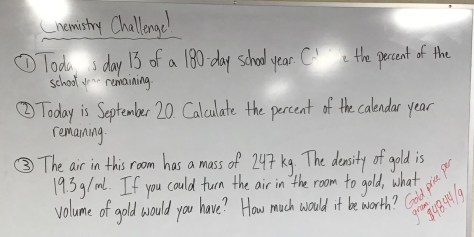 Chemistry Challenge!
① Today is day 13 of a 180-day school year. the percent of the
school year remaining.
② Today is September 20. Calculate the percent of the calendar year
remaining.
③ The air in this room has a mass of 247 kg. The density of gold is
19.3 g/mL. If you could turn the air in the room to gold, what
volume of gold would you have? How much would it be worth?
Gold price per
gram $48.44/g